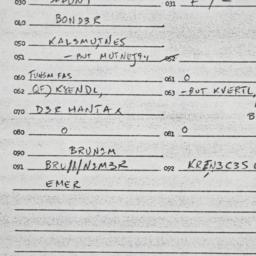 030
031
040 BOND3R
050 KALSMUTNES
051 - BUT MUTNET94 052
060 TUHSM FAS 061 0
062 (JF) KYENDL, 063 -BUT KVERTL,
070 D3R HANTAX
080 0 081 0
090 BRUNSM
091 BRU///N3M3R 092 KREN3C3S
EMER